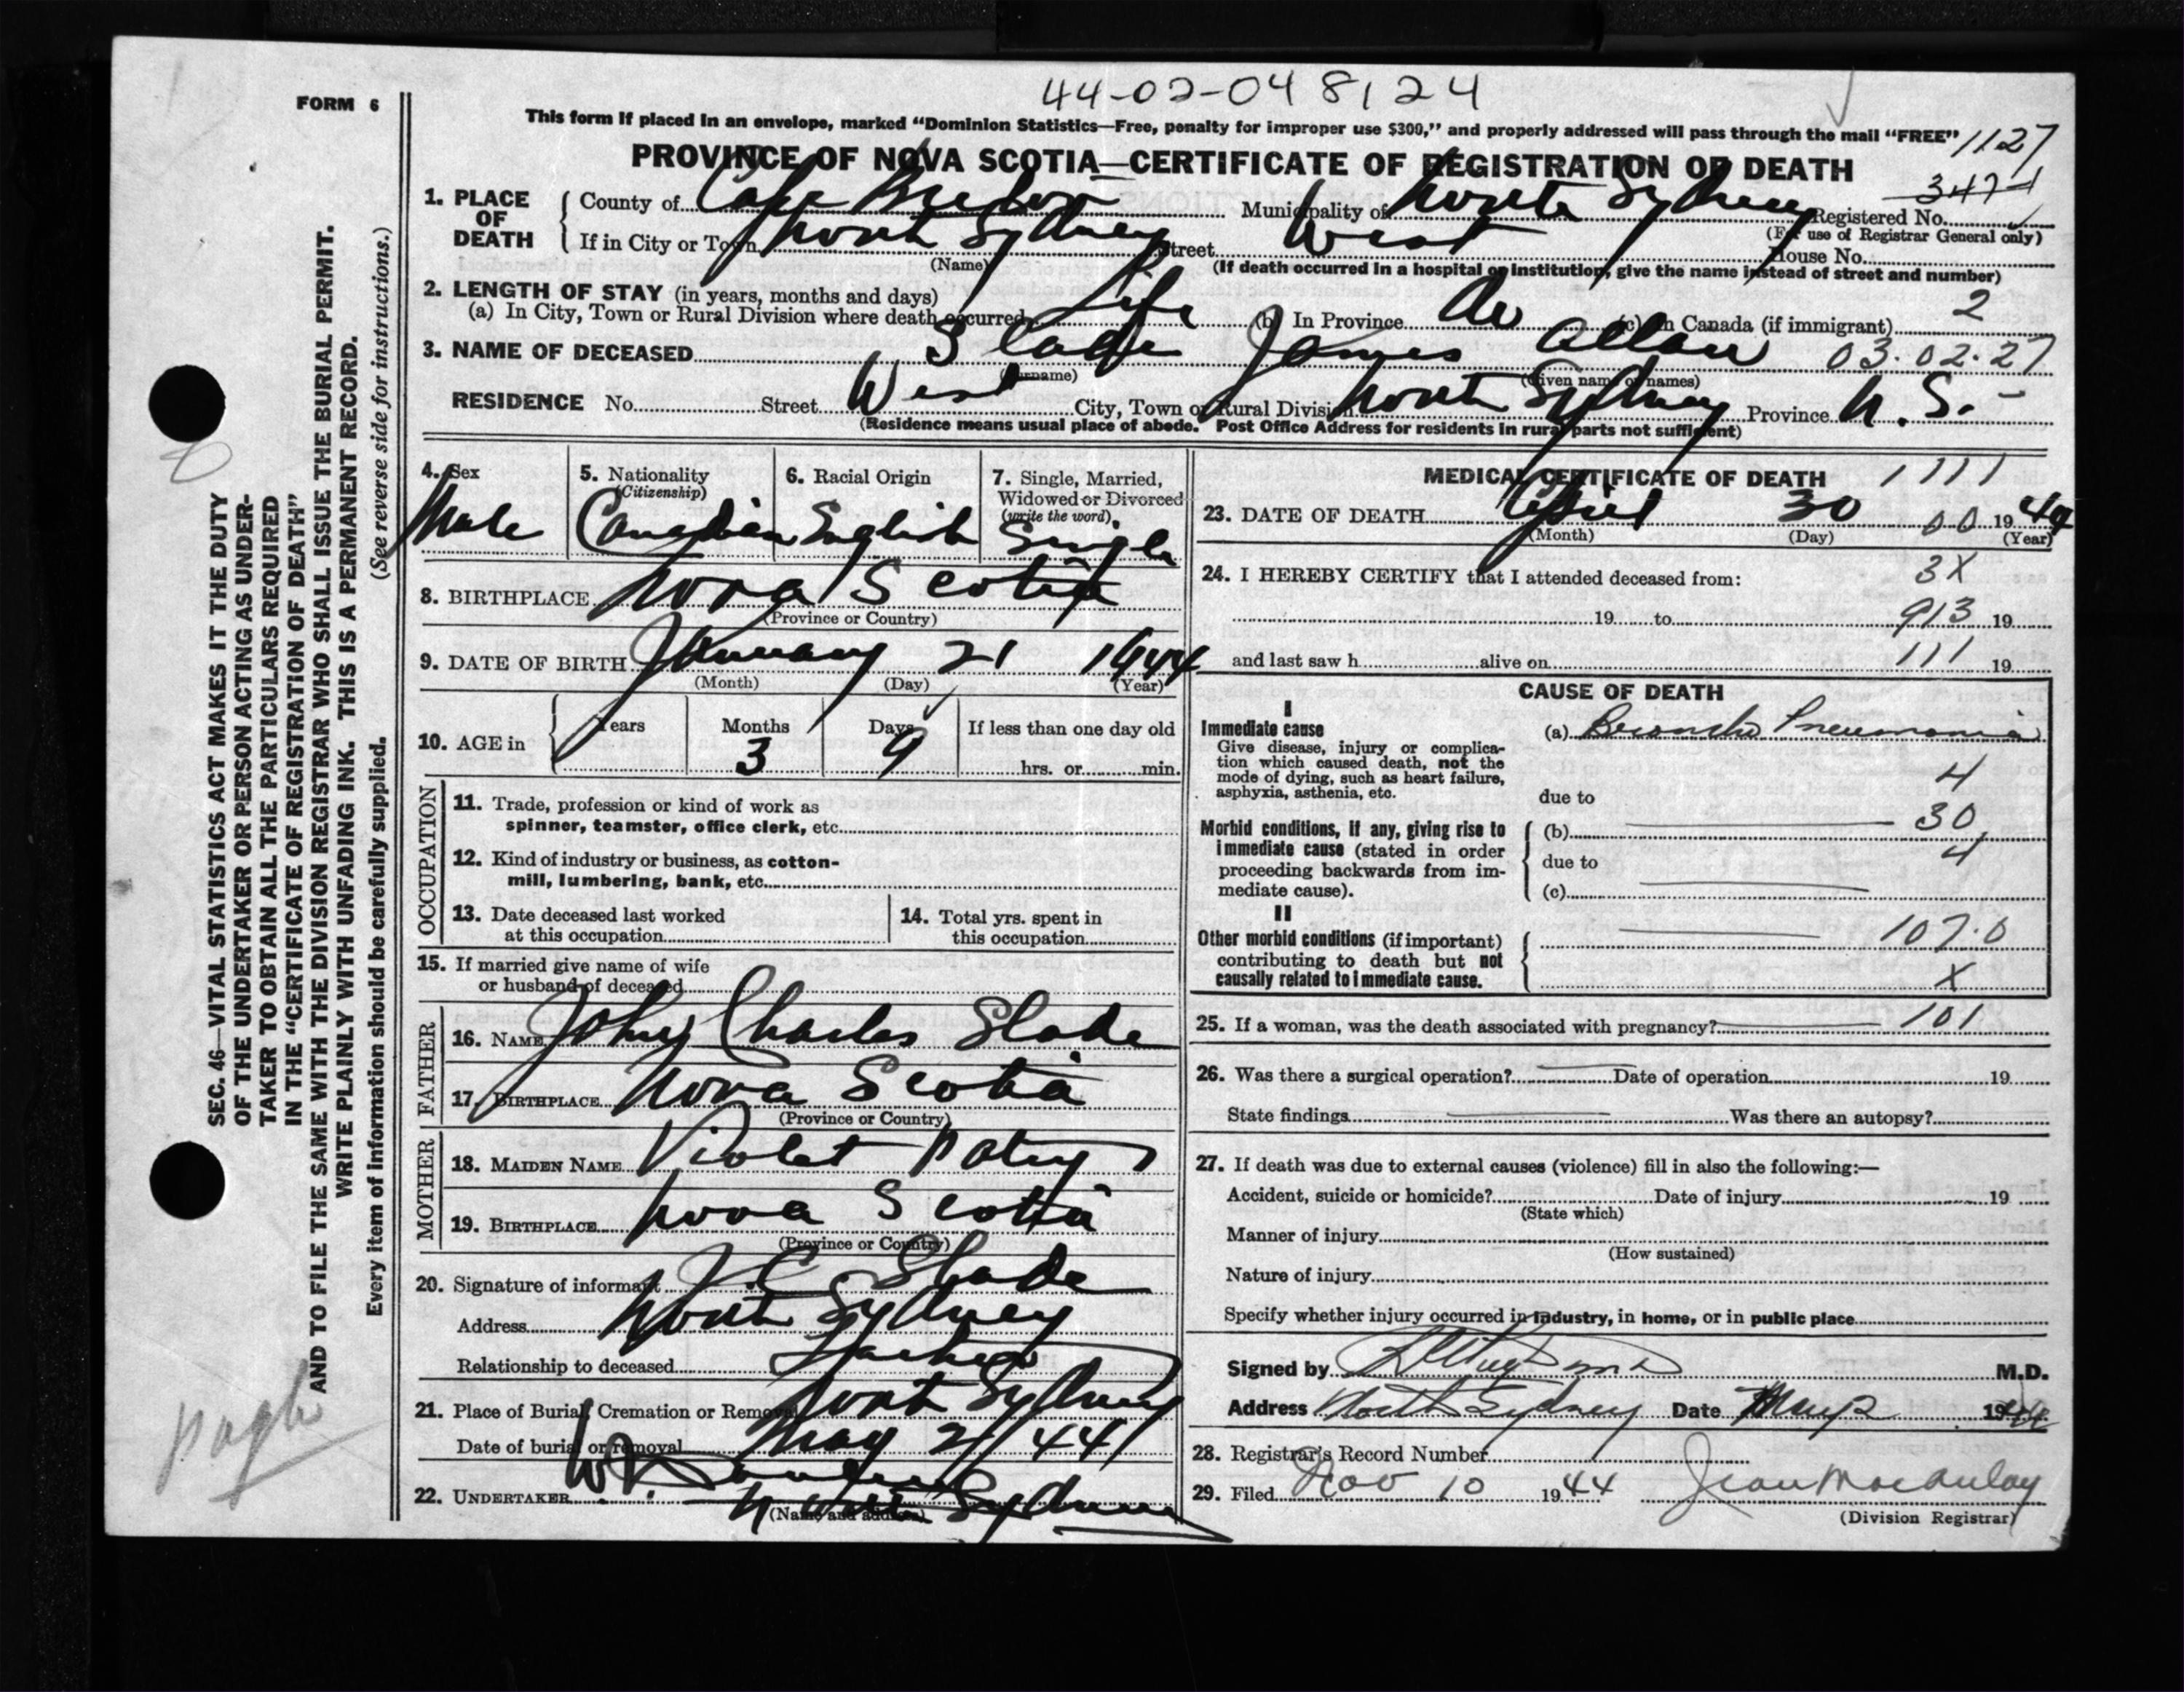 44-02-04 8124
FORM 6
This form if placed in an envelope, marked “Dominion Statistics—Free, penalty for improper use $300,” and properly addressed will pass through the mail “FREE”
1127
PROVINCE OF NOVA SCOTIA—CERTIFICATE OF REGISTRATION OF DEATH
1. PLACE OF DEATH
County of Cape Breton Municipality of North Sydney Registered No. 3474
(For use of Registrar General only)
If in City or Town North Sydney Street West House No.
(Name) (If death occurred in a hospital or institution, give the name instead of street and number)
2. LENGTH OF STAY (in years, months and days)
(a) In City, Town or Rural Division where death occurred Life (b) In Province (c) In Canada (if immigrant) 2
3. NAME OF DECEASED Slade James Allan 03.02.27
(Surname) (Given name or names)
RESIDENCE No. Street West City, Town or Rural Division North Sydney Province N. S.-
(Residence means usual place of abode. Post Office Address for residents in rural parts not sufficient)
4. Sex Male
5. Nationality (Citizenship) Canadian
6. Racial Origin English
7. Single, Married, Widowed or Divorced (write the word) Single
8. BIRTHPLACE Nova Scotia
(Province or Country)
9. DATE OF BIRTH January 21 1944
(Month) (Day) (Year)
10. AGE in Years Months 3 Days 9 If less than one day old
hrs. or min.
OCCUPATION
11. Trade, profession or kind of work as
spinner, teamster, office clerk, etc.
12. Kind of industry or business, as cotton-
mill, lumbering, bank, etc.
13. Date deceased last worked
at this occupation
14. Total yrs. spent in
this occupation
15. If married give name of wife
or husband of deceased
FATHER
16. NAME John Charles Slade
17. BIRTHPLACE Nova Scotia
(Province or Country)
MOTHER
18. MAIDEN NAME Violet
19. BIRTHPLACE Nova Scotia
(Province or Country)
20. Signature of informant J. C. Slade
Address North Sydney
Relationship to deceased Father
21. Place of Burial, Cremation or Removal North Sydney
Date of burial or removal May 2/44
22. UNDERTAKER
North Sydney
(Name and address)
MEDICAL CERTIFICATE OF DEATH 1111
23. DATE OF DEATH April 30 00 1944
(Month) (Day) (Year)
24. I HEREBY CERTIFY that I attended deceased from: 3X
19 to 913 19
and last saw h alive on 111 19
CAUSE OF DEATH
I
Immediate cause
Give disease, injury or complica-
tion which caused death, not the
mode of dying, such as heart failure,
asphyxia, asthenia, etc.
(a) Broncho Pneumonia
4
due to
Morbid conditions, if any, giving rise to
immediate cause (stated in order
proceeding backwards from im-
mediate cause).
(b) 30
due to 4
(c)
II
Other morbid conditions (if important)
contributing to death but not
causally related to immediate cause.
107.0
X
25. If a woman, was the death associated with pregnancy? 101
26. Was there a surgical operation? Date of operation 19
State findings Was there an autopsy?
27. If death was due to external causes (violence) fill in also the following:—
Accident, suicide or homicide? Date of injury 19
(State which)
Manner of injury
(How sustained)
Nature of injury
Specify whether injury occurred in industry, in home, or in public place
Signed by M.D.
Address North Sydney Date May 2 1944
28. Registrar's Record Number
29. Filed Nov 10 1944 Jean MacAulay
(Division Registrar)
SEC. 46—VITAL STATISTICS ACT MAKES IT THE DUTY
OF THE UNDERTAKER OR PERSON ACTING AS UNDER-
TAKER TO OBTAIN ALL THE PARTICULARS REQUIRED
IN THE “CERTIFICATE OF REGISTRATION OF DEATH”
AND TO FILE THE SAME WITH THE DIVISION REGISTRAR WHO SHALL ISSUE THE BURIAL PERMIT.
WRITE PLAINLY WITH UNFADING INK. THIS IS A PERMANENT RECORD.
Every item of information should be carefully supplied. (See reverse side for instructions.)